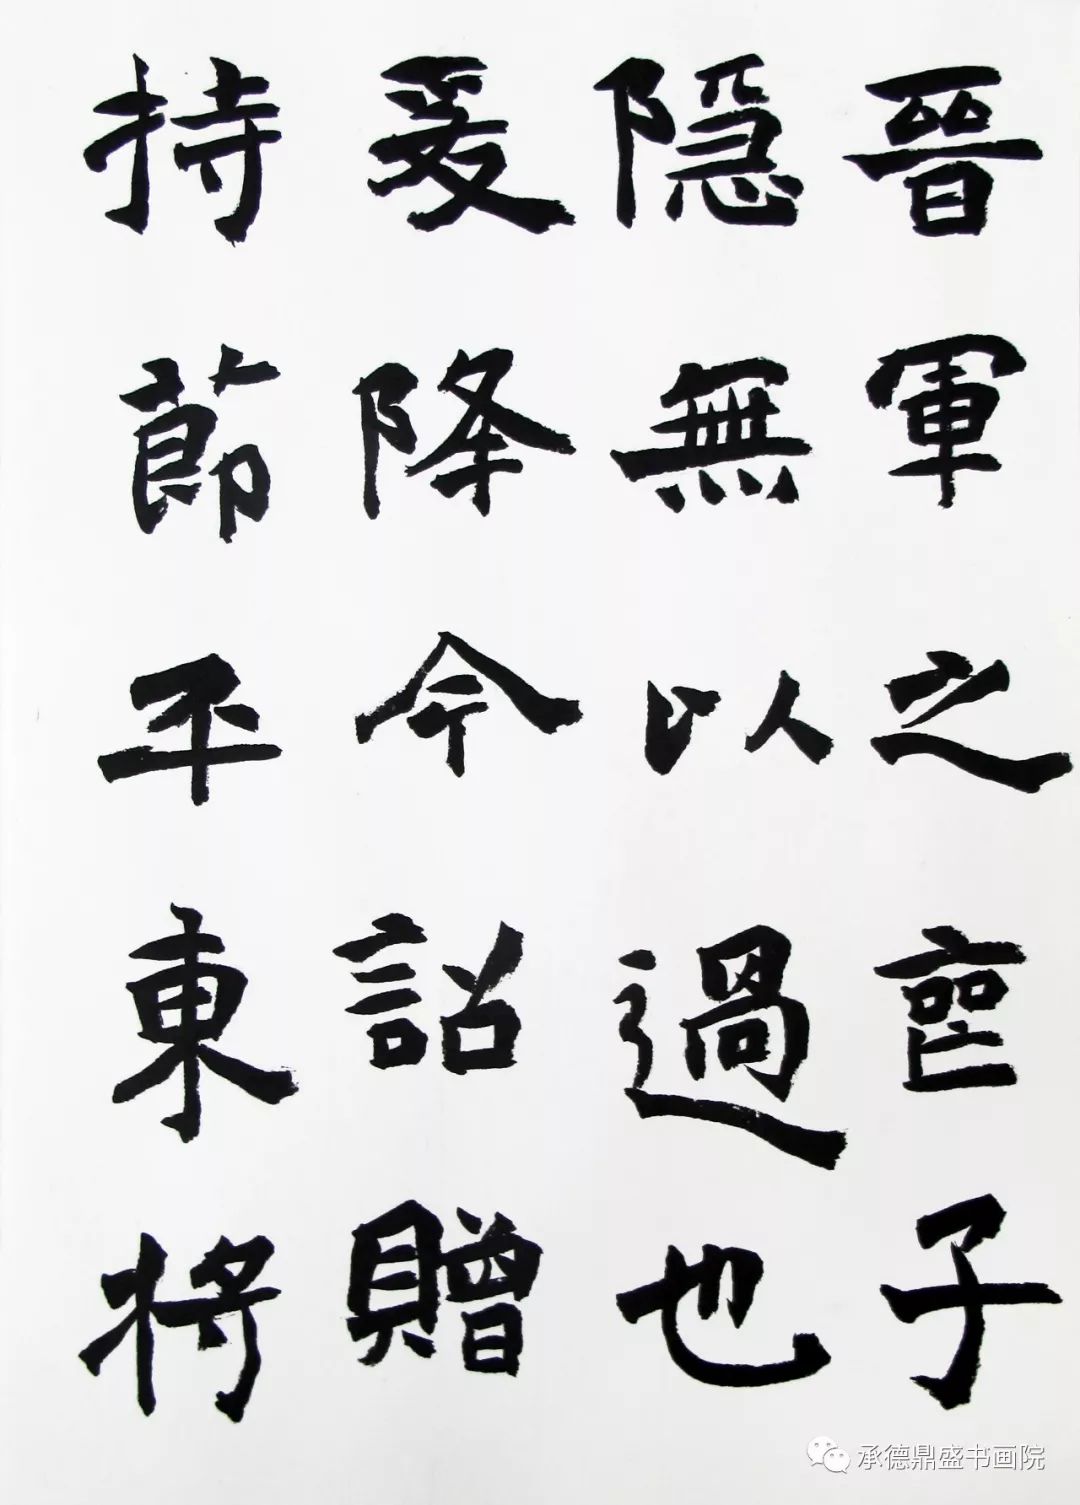 晉軍之喪子
隐無以過也
爰降今詔贈
持節平東將
承德鼎盛书画院